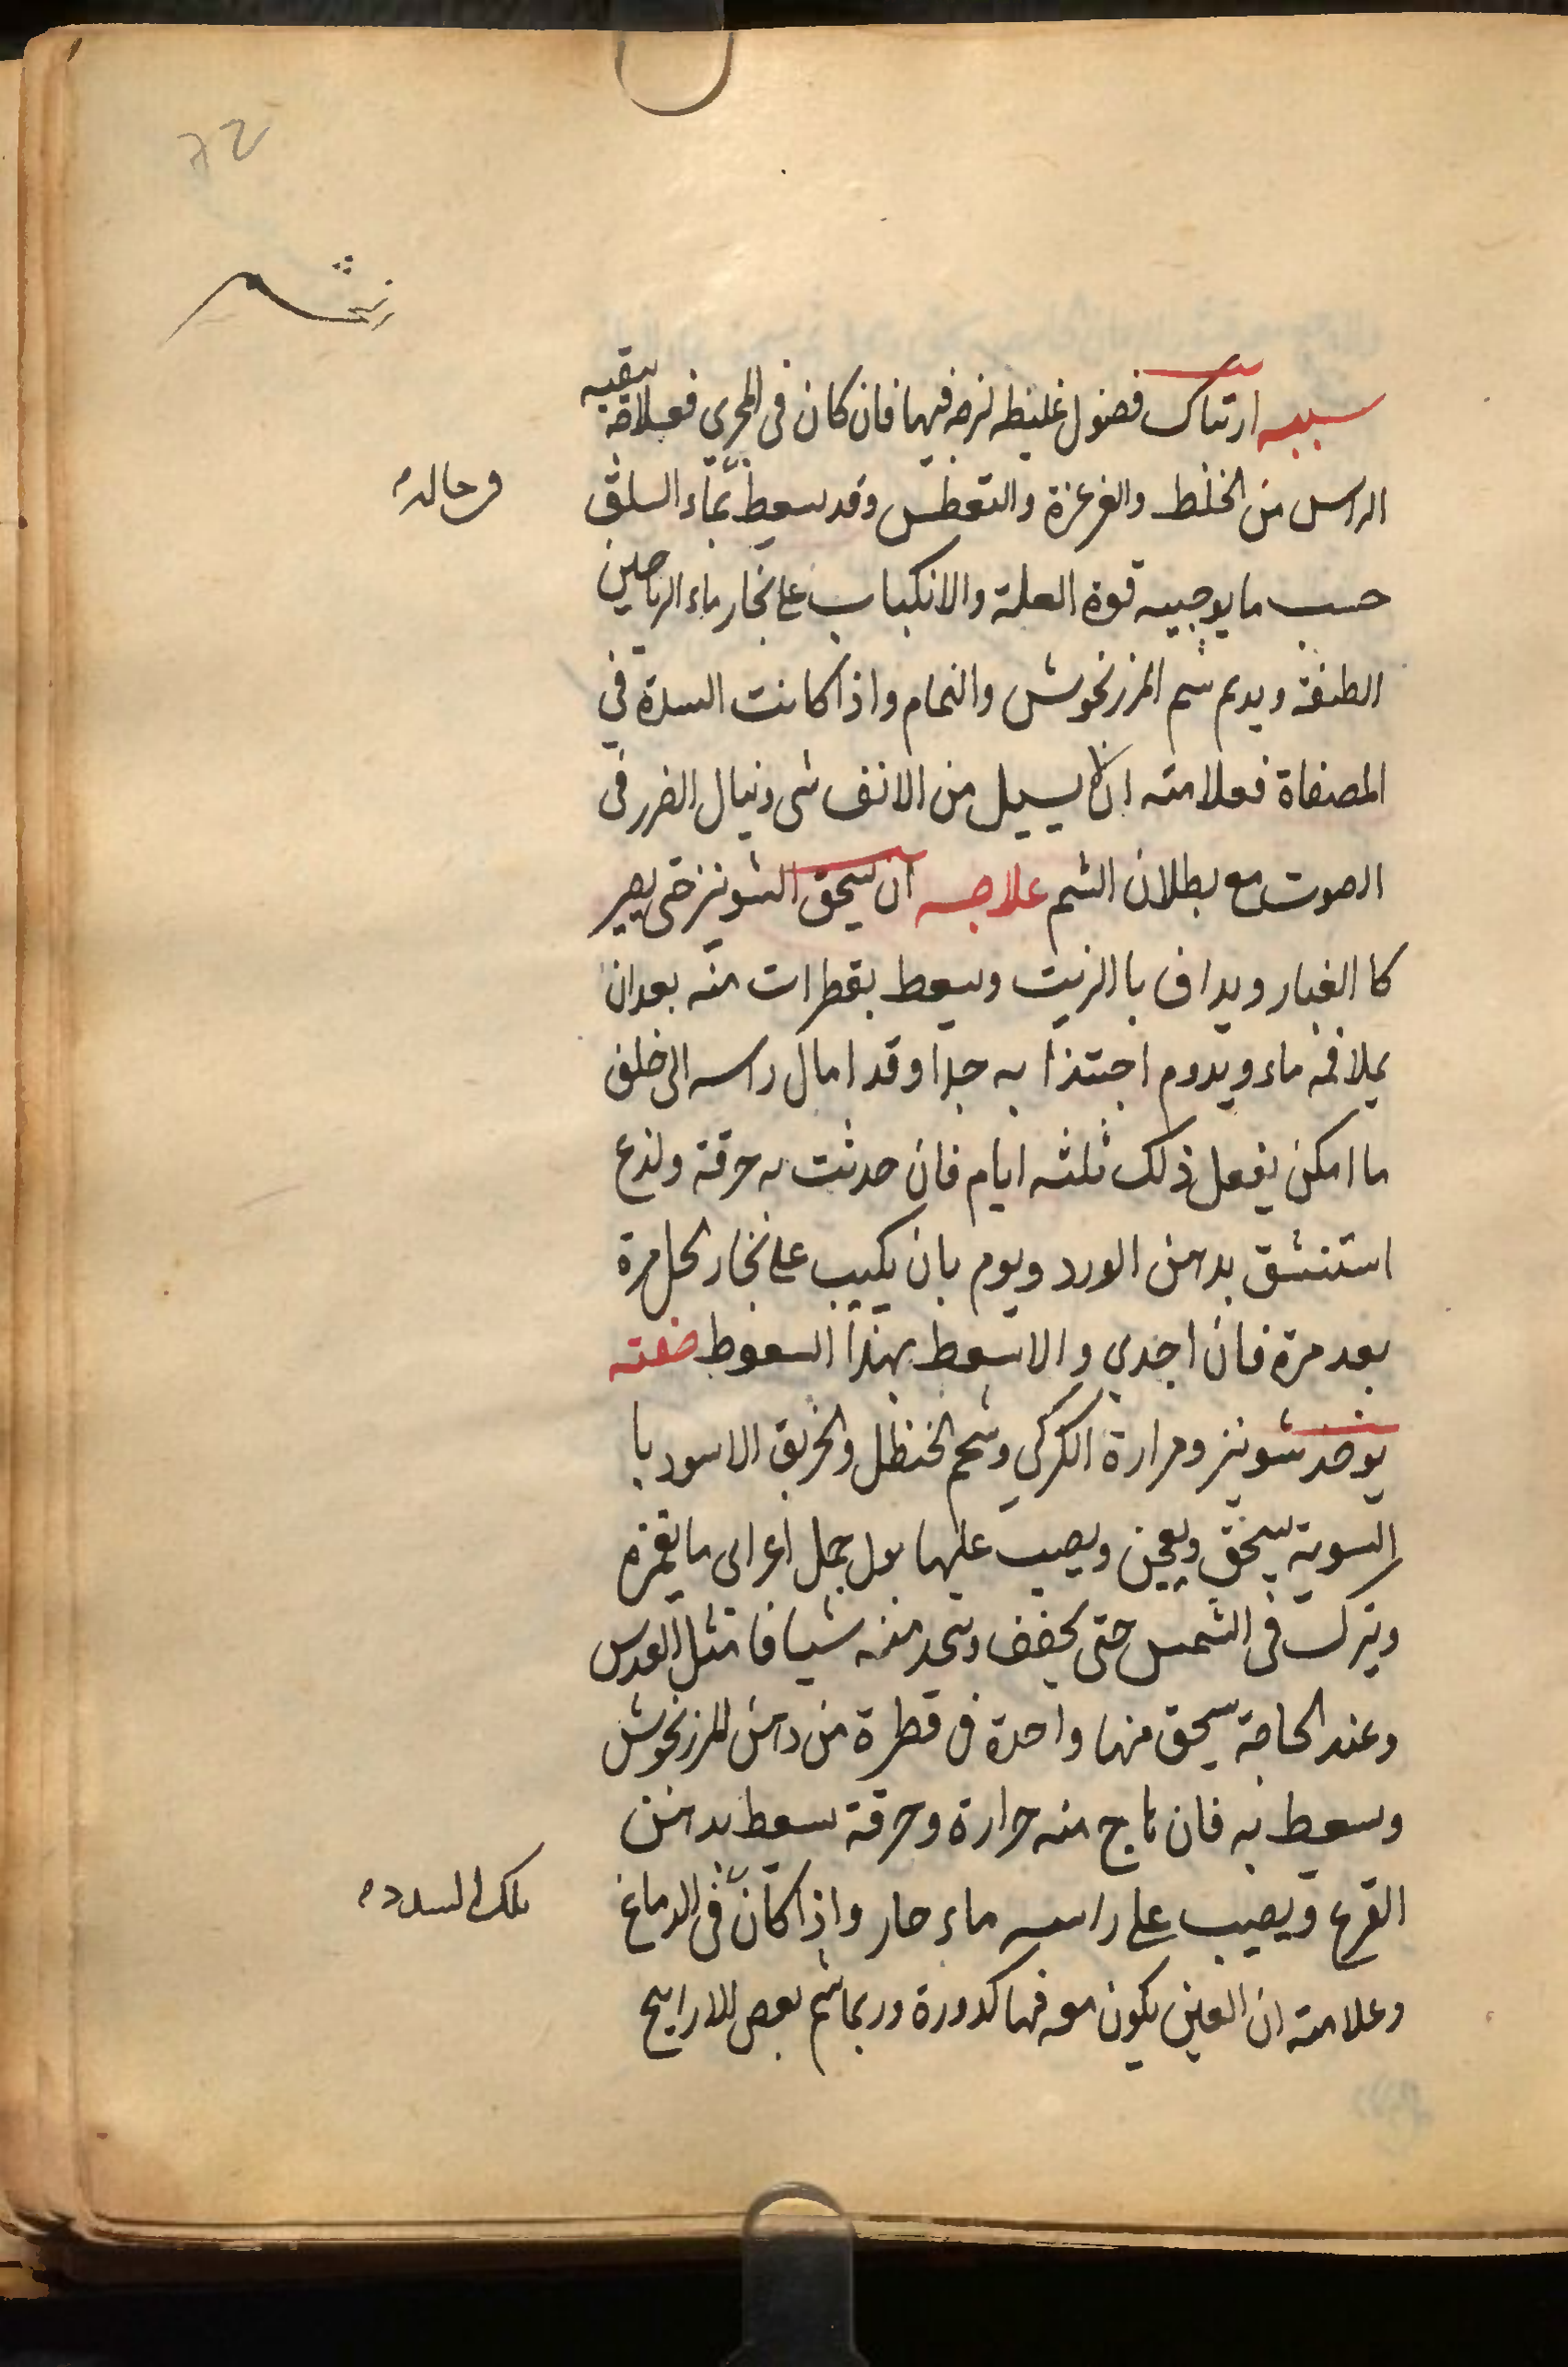 72
سببه ارتباك فضول غليظه لزجه فيها فان كان فى المجرى فعلاجه تنقيه
الراس من الخلط والغرغرة والتعطس وقد يسعط بماء السلق
وحاله
حسب ما يوجبه قوة العلة والانكباب على بخار ماء الرياحين
الطنفة ويدىم شم المرزنجوش والنمام واذا كانت السدة في
المصفاة فعلامته ان لا يسيل من الانف شى وينال الضرر فى
الصوت مع بطلان الشم علاجه ان يسحق الشونيز حتى يصير
كا الغبار ويداف با الزيت ويسعط بقطرات منه بعد ان
يملا فمه ماء ويدوم اجتذا به جدا وقد امال راسه الى خلف
ما امكن يفعل ذلك ثلثه ايام فان حدثت به حرقة ولذع
استنشق بدهن الورد ويوم بان يكبب على بخار الخل مرة
بعد مرة فان اجدى والا سعط بهذا السعوط صفته
يوخذ شونيز ومرارة الكركي وشحم الحنظل والخربق الاسود با
السوية يسحق ويعجن ويصب عليها بول جمل اعرابى ما يغمره
ويترك فى الشمس حتى يجفف ويتخذ منه شيافا مثل العدس
وعند الحاجة يسحق منها واحدة فى قطرة من دهن المرزنجوش
وسعط به فان هاج منه حرارة وحرقة سعط بدهن
القرع ويصب على راسه ماء حار واذا كان فى الدماغ
تلك السدد
وعلامته ان العين يكون معه فيها كدورة وربما شم بعض الارايح